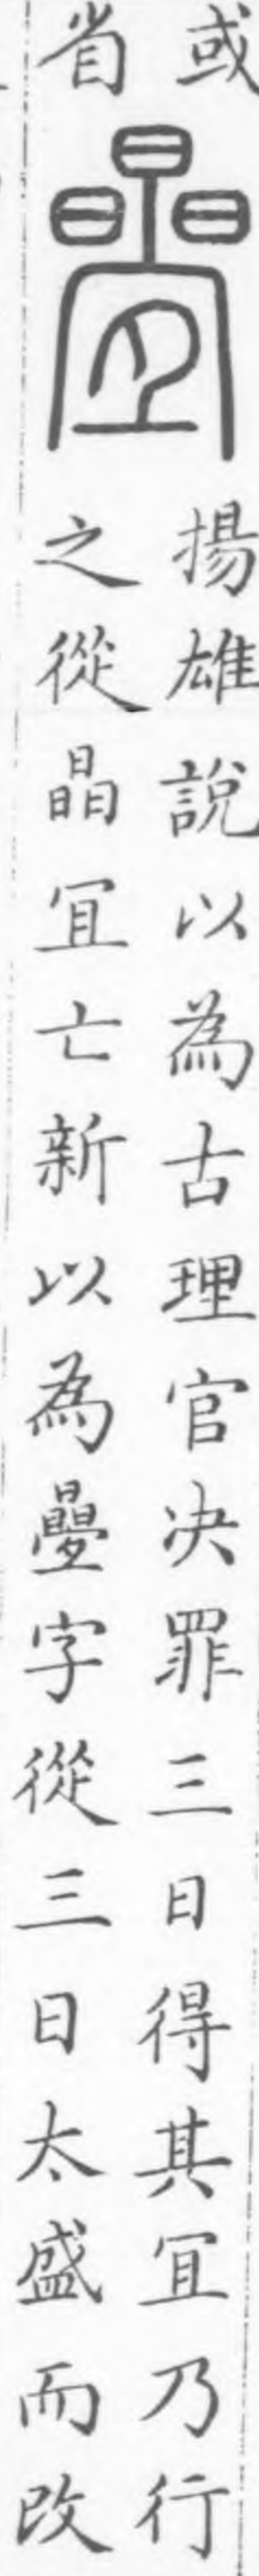 或
省
疊
揚雄說以為古理官决罪三日得其冝乃行
之從晶冝亡新以為疊字從三日太盛而改